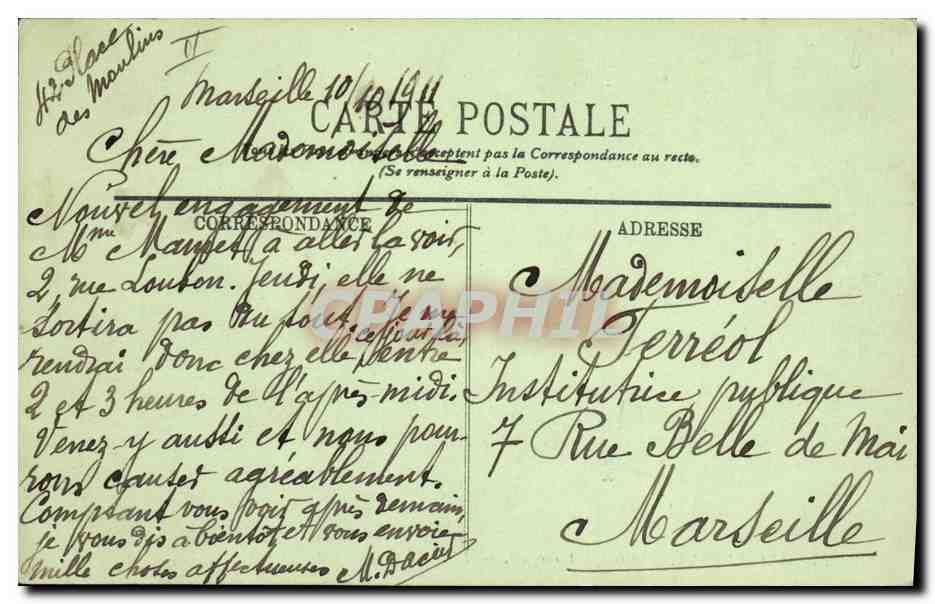 42 Place
des Moulins
II
Marseille 10/10 1911
CARTE POSTALE
Chère Mademoiselle
acceptent pas la Correspondance au recto.
(Se renseigner à la Poste).
CORRESPONDANCE
Nouvel engagement de
Mme Mauzet à aller la voir,
2, rue Loubon. Jeudi, elle ne
sortira pas du tout. Je me
rendrai donc chez elle, ce jour là, entre
2 et 3 heures de l'après-midi.
Venez-y aussi et nous pour-
rons causer agréablement.
Comptant vous voir après demain,
je vous dis à bientôt et vous envoie
mille choses affectueuses M.
ADRESSE
Mademoiselle
Ferréol
Institutrice publique
7 Rue Belle de Mai
Marseille
CPAPHIL